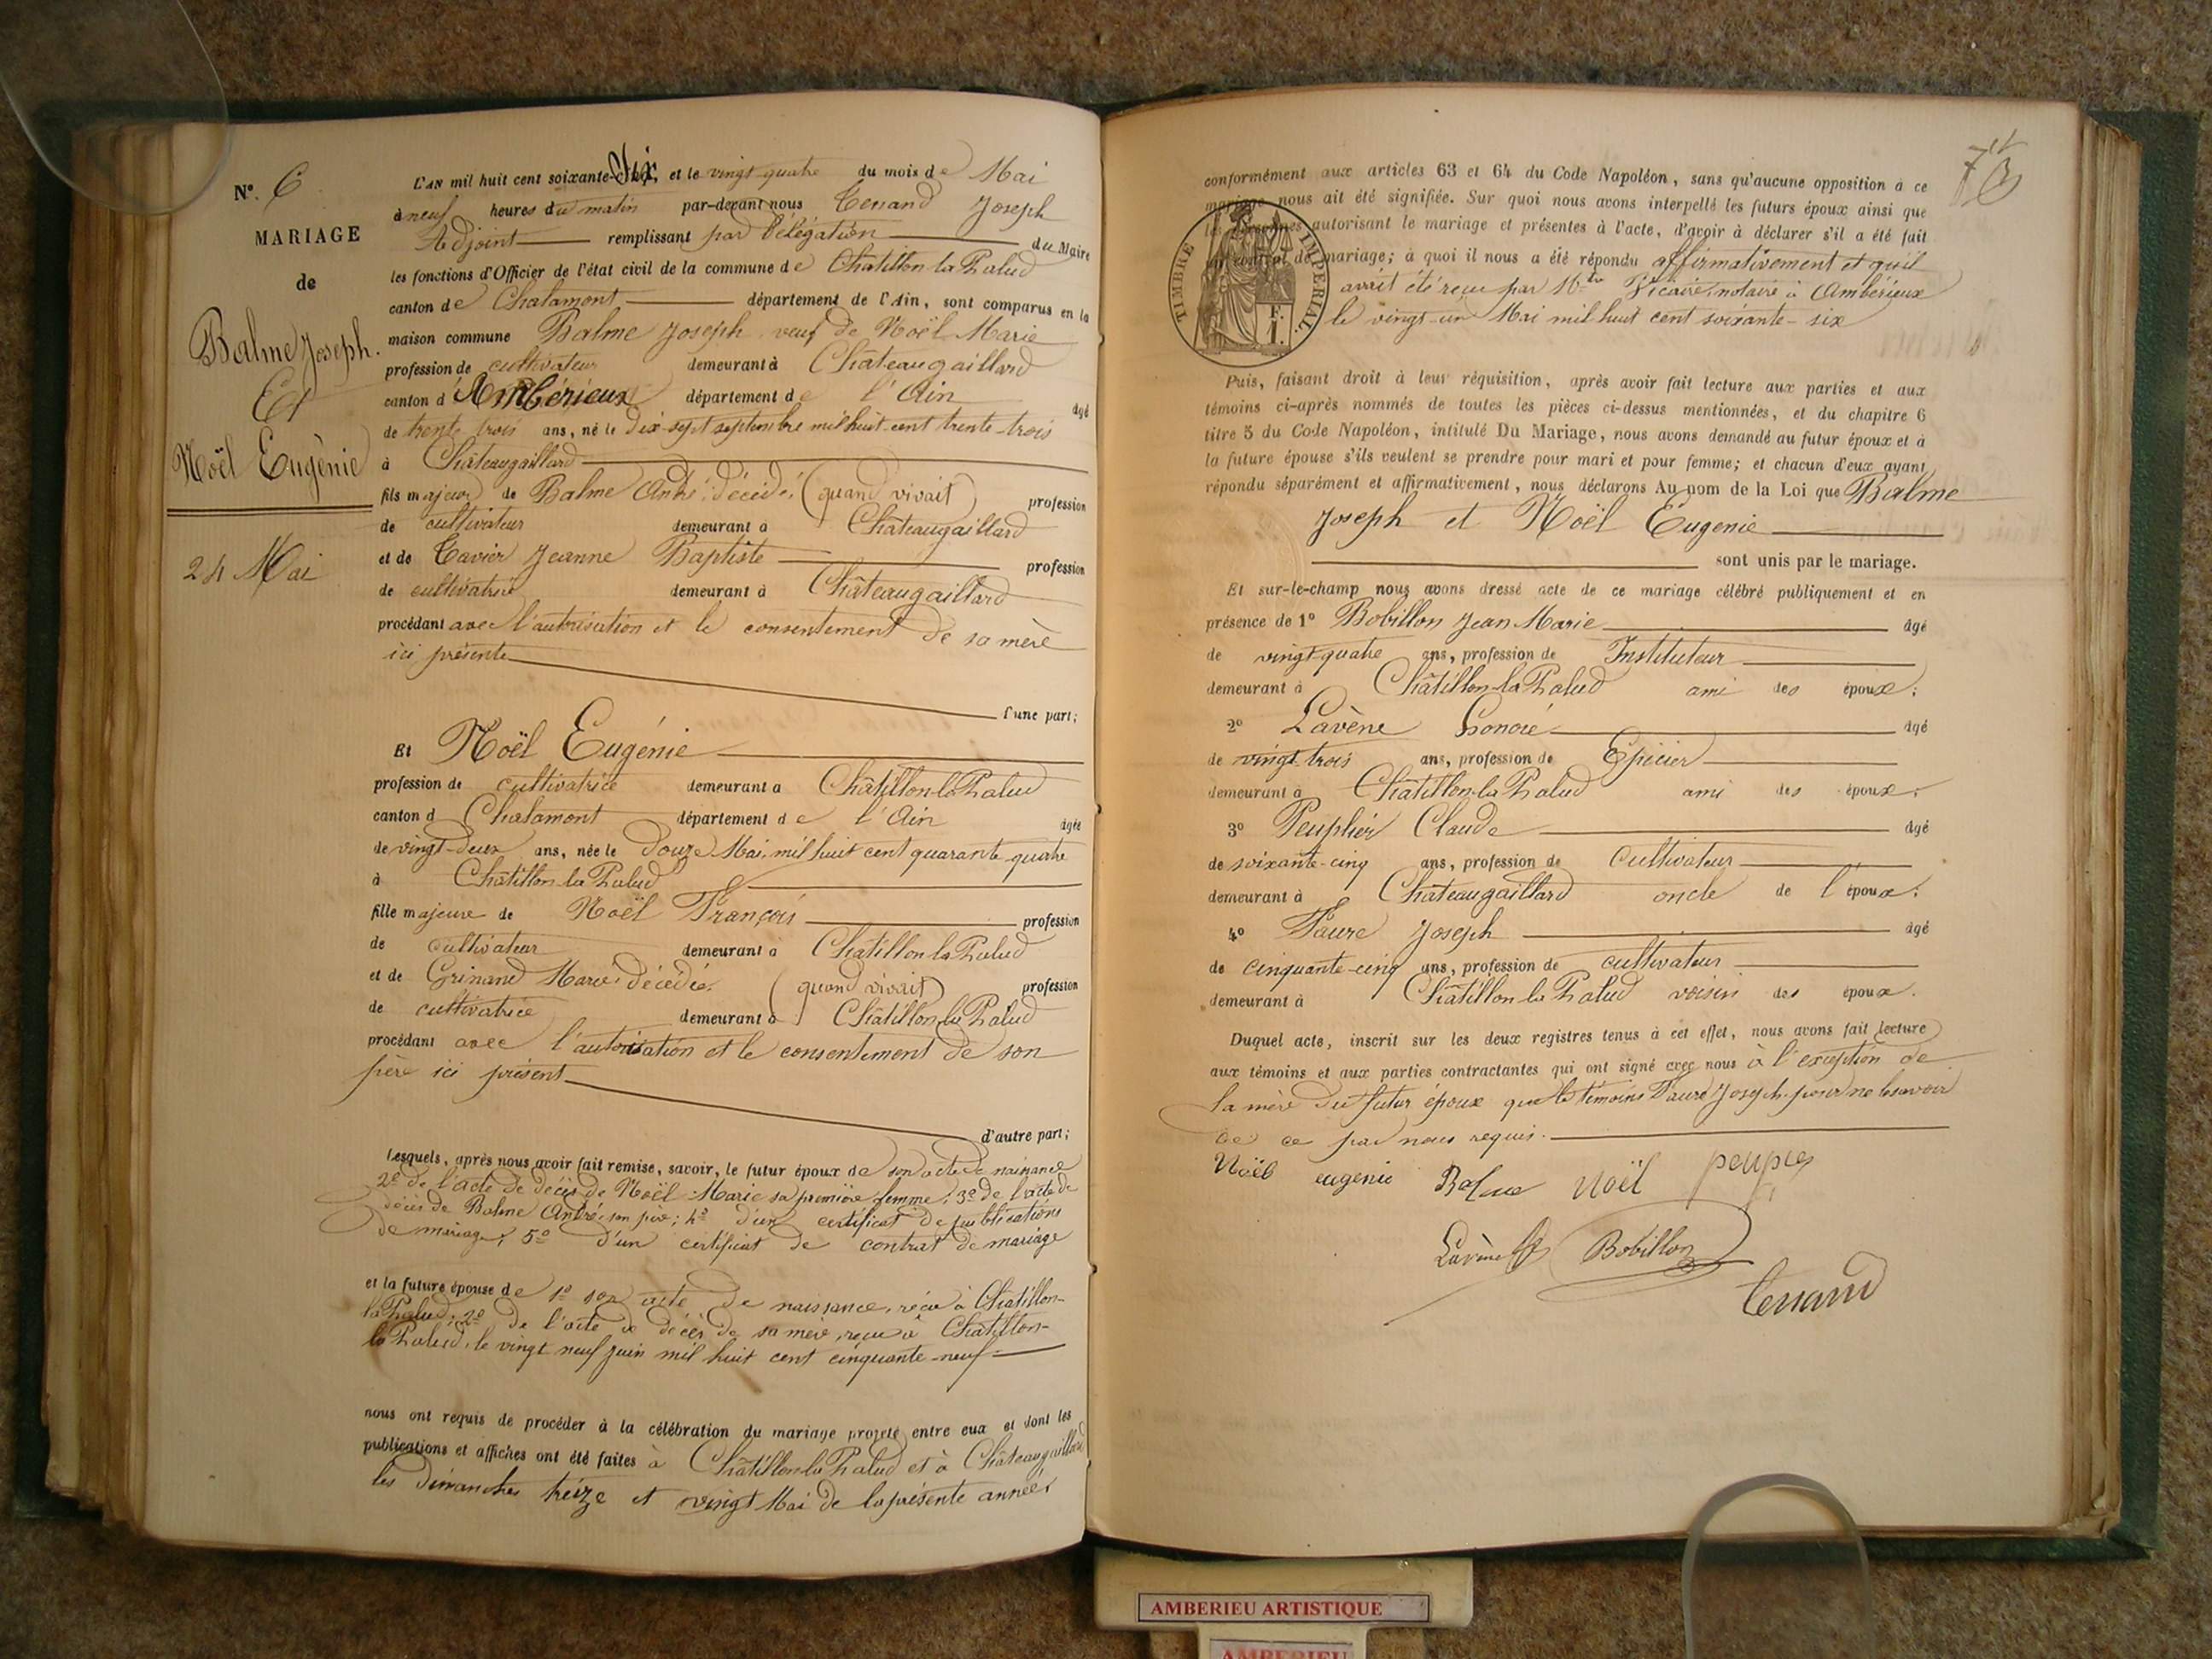 N°. 6
MARIAGE
de
Balme Joseph.
Et
Noël Eugénie
24 Mai
L'AN mil huit cent soixante-Six, et le vingt-quatre du mois de Mai
à neuf heures du matin par-devant nous Tenand Joseph
Adjoint remplissant par délégation du Maire
les fonctions d'Officier de l'état civil de la commune de Châtillon-la-Palud
canton de Chalamont département de l'Ain, sont comparus en la
maison commune Balme Joseph veuf de Noël Marie
profession de cultivateur demeurant à Châteaugaillard
canton d'Ambérieux département de l'Ain âgé
de trente-trois ans, né le dix-sept septembre mil huit-cent trente-trois
à Châteaugaillard
fils majeur de Balme André, décédé, (quand vivait) profession
de cultivateur demeurant à Châteaugaillard
et de Tavier Jeanne Baptiste profession
de cultivatrice demeurant à Châteaugaillard
procédant avec l'autorisation et le consentement de sa mère
ici présente
d'une part;
Et Noël Eugénie
profession de cultivatrice demeurant à Châtillon-la-Palud
canton d Chalamont département de l'Ain âgée
de vingt-deux ans, née le douze Mai, mil huit cent quarante-quatre
à Châtillon-la-Palud
fille majeure de Noël François profession
de cultivateur demeurant à Châtillon-la-Palud
et de Grinand Marie, décédée, (quand vivait) profession
de cultivatrice demeurant à Châtillon-la-Palud
procédant avec l'autorisation et le consentement de son
père ici présent
d'autre part;
Lesquels, après nous avoir fait remise, savoir, le futur époux de son acte de naissance
2° de l'acte de décès de Noël Marie sa première femme; 3° de l'acte de
décès de Balme André, son père; 4° d'un certificat de publications
de mariage; 5° d'un certificat de contrat de mariage
et la future épouse de 1° son acte de naissance, reçu à Châtillon-
la-Palud; 2° de l'acte de décès de sa mère, reçu à Châtillon-
la-Palud, le vingt neuf Juin mil huit cent cinquante-neuf
nous ont requis de procéder à la célébration du mariage projeté entre eux et dont les
publications et affiches ont été faites à Châtillon-la-Palud et à Châteaugaillard
les dimanches treize et vingt Mai de la présente année
conformément aux articles 63 et 64 du Code Napoléon, sans qu'aucune opposition à ce
mariage nous ait été signifiée. Sur quoi nous avons interpellé les futurs époux ainsi que
les personnes autorisant le mariage et présentes à l'acte, d'avoir à déclarer s'il a été fait
un contrat de mariage; à quoi il nous a été répondu affirmativement et qu'il
avait été reçu par Mtre Vicaire, notaire à Ambérieux
le vingt-un Mai mil huit cent soixante-six
TIMBRE IMPÉRIAL.
Puis, faisant droit à leur réquisition, après avoir fait lecture aux parties et aux
témoins ci-après nommés de toutes les pièces ci-dessus mentionnées, et du chapitre 6
titre 5 du Code Napoléon, intitulé Du Mariage, nous avons demandé au futur époux et à
la future épouse s'ils veulent se prendre pour mari et pour femme; et chacun d'eux ayant
répondu séparément et affirmativement, nous déclarons Au nom de la Loi que Balme
Joseph et Noël Eugenie
sont unis par le mariage.
Et sur-le-champ nous avons dressé acte de ce mariage célébré publiquement et en
présence de 1° Bobillon Jean Marie âgé
de vingt-quatre ans, profession de Instituteur
demeurant à Châtillon-la-Palud ami des époux;
2° Lavène honoré âgé
de vingt-trois ans, profession de Epicier
demeurant à Châtillon-la-Palud ami des époux;
3° Peuplier Claude âgé
de soixante-cinq ans, profession de Cultivateur
demeurant à Châteaugaillard oncle de l'époux;
4° Faure Joseph âgé
de cinquante-cinq ans, profession de cultivateur
demeurant à Châtillon-la-Palud voisin des époux.
Duquel acte, inscrit sur les deux registres tenus à cet effet, nous avons fait lecture
aux témoins et aux parties contractantes qui ont signé avec nous à l'exception de
la mère du futur époux que le témoins Faure Joseph pour ne le savoir
de ce par nous requis.
Noël eugenie Balme Noël
Lavène Bobillon
Tenand
AMBERIEU ARTISTIQUE
AMBERIEU